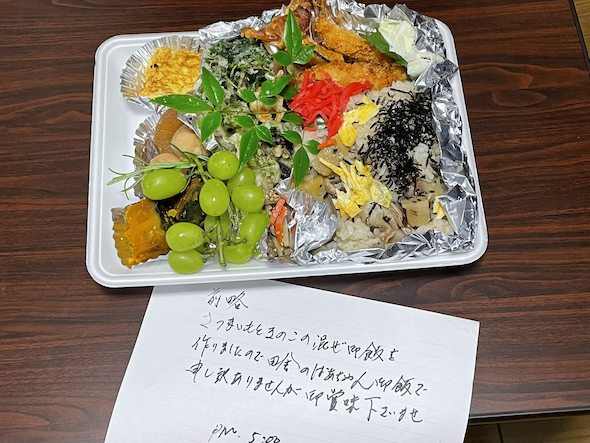 前略
さつまいもときのこの混ぜ御飯を
作りましたので田舎のばあちゃん御飯で
申し訳ありませんが御賞味下さいませ
PM. 5:00